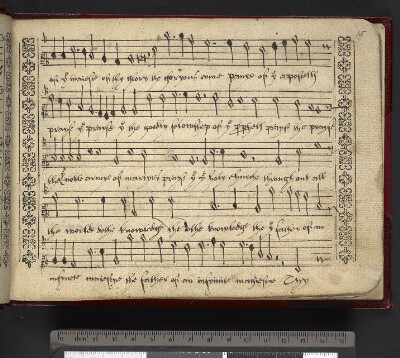 of yͤ maiestie of thy glory the gloryous come panye of yͤ apostells
prayse yͤ prayse yͤ the goodly felowshep of yͤ prophetts prayse the prayse
the noble armye of martyrs prayse yͤ yͤ holy churche throughout all
the worlde dothe knowledge the dothe knowledge the yͤ father of an
infynete maiestye the father of an infynite maiestye Thy